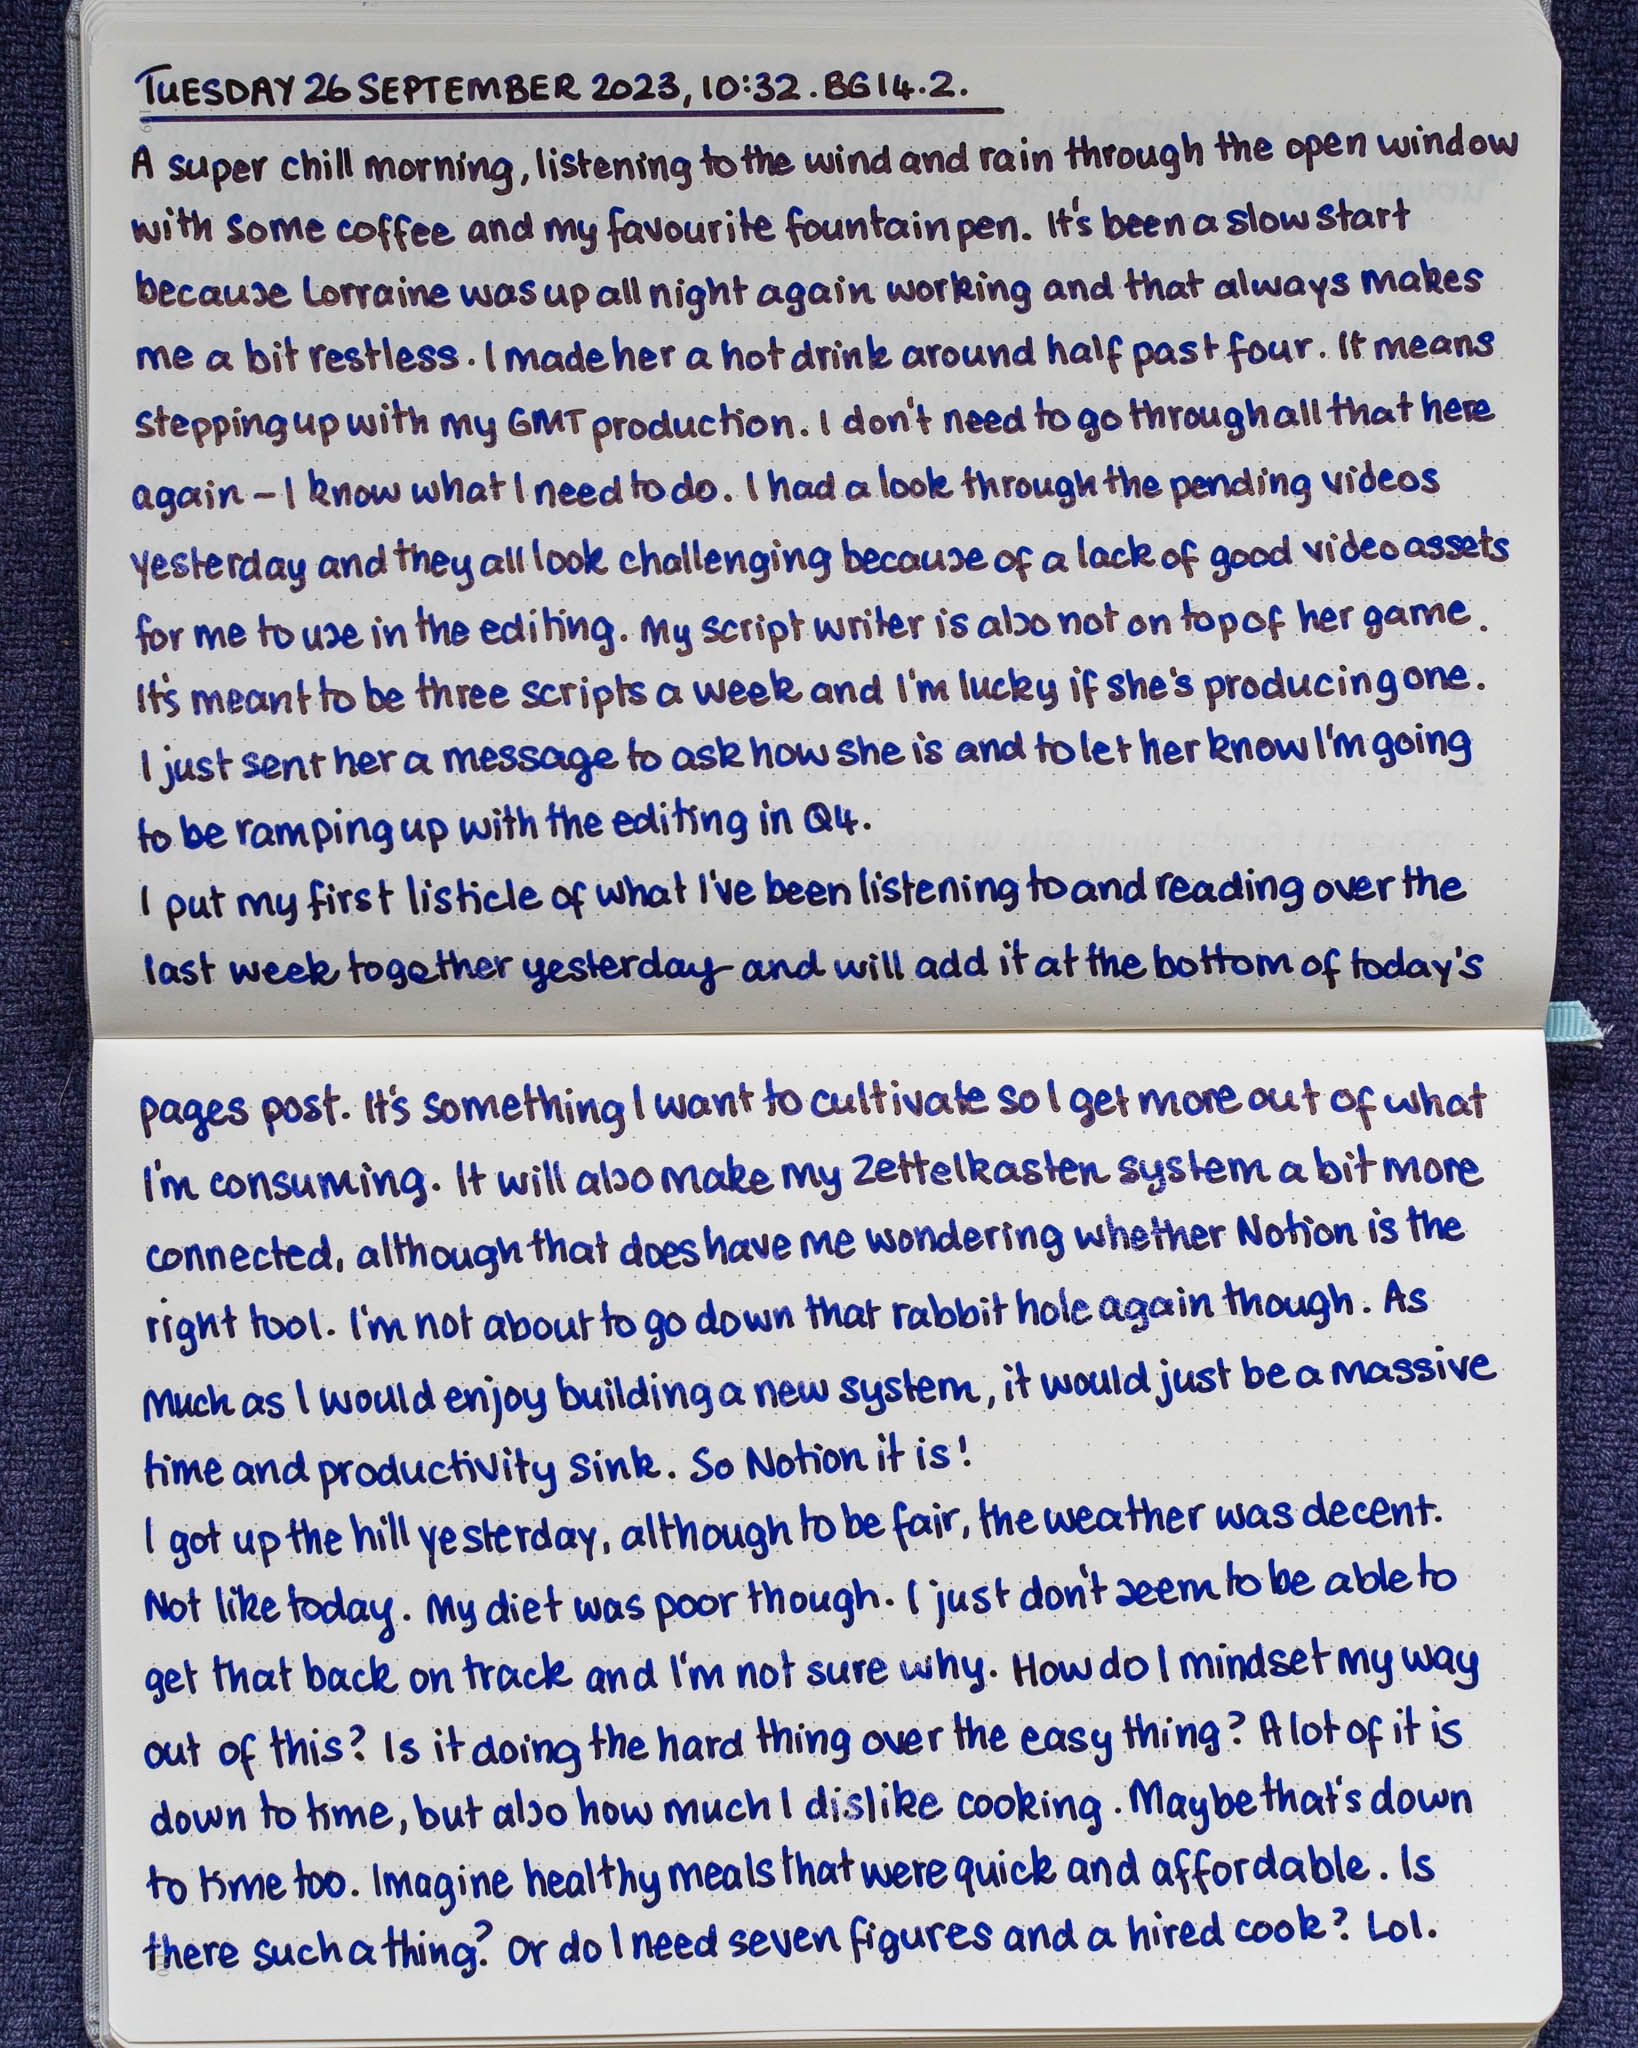 TUESDAY 26 SEPTEMBER 2023, 10:32. BG14.2.
A super chill morning, listening to the wind and rain through the open window
with some coffee and my favourite fountain pen. It's been a slow start
because Lorraine was up all night again working and that always makes
me a bit restless. I made her a hot drink around half past four. It means
stepping up with my GMT production. I don't need to go through all that here
again – I know what I need to do. I had a look through the pending videos
yesterday and they all look challenging because of a lack of good video assets
for me to use in the editing. My script writer is also not on top of her game.
It's meant to be three scripts a week and I'm lucky if she's producing one.
I just sent her a message to ask how she is and to let her know I'm going
to be ramping up with the editing in Q4.
I put my first listicle of what I've been listening to and reading over the
last week together yesterday and will add it at the bottom of today's
pages post. It's something I want to cultivate so I get more out of what
I'm consuming. It will also make my Zettelkasten system a bit more
connected, although that does have me wondering whether Notion is the
right tool. I'm not about to go down that rabbit hole again though. As
much as I would enjoy building a new system, it would just be a massive
time and productivity sink. So Notion it is!
I got up the hill yesterday, although to be fair, the weather was decent.
Not like today. My diet was poor though. I just don't seem to be able to
get that back on track and I'm not sure why. How do I mindset my way
out of this? Is it doing the hard thing over the easy thing? A lot of it is
down to time, but also how much I dislike cooking. Maybe that's down
to time too. Imagine healthy meals that were quick and affordable. Is
there such a thing? Or do I need seven figures and a hired cook? Lol.